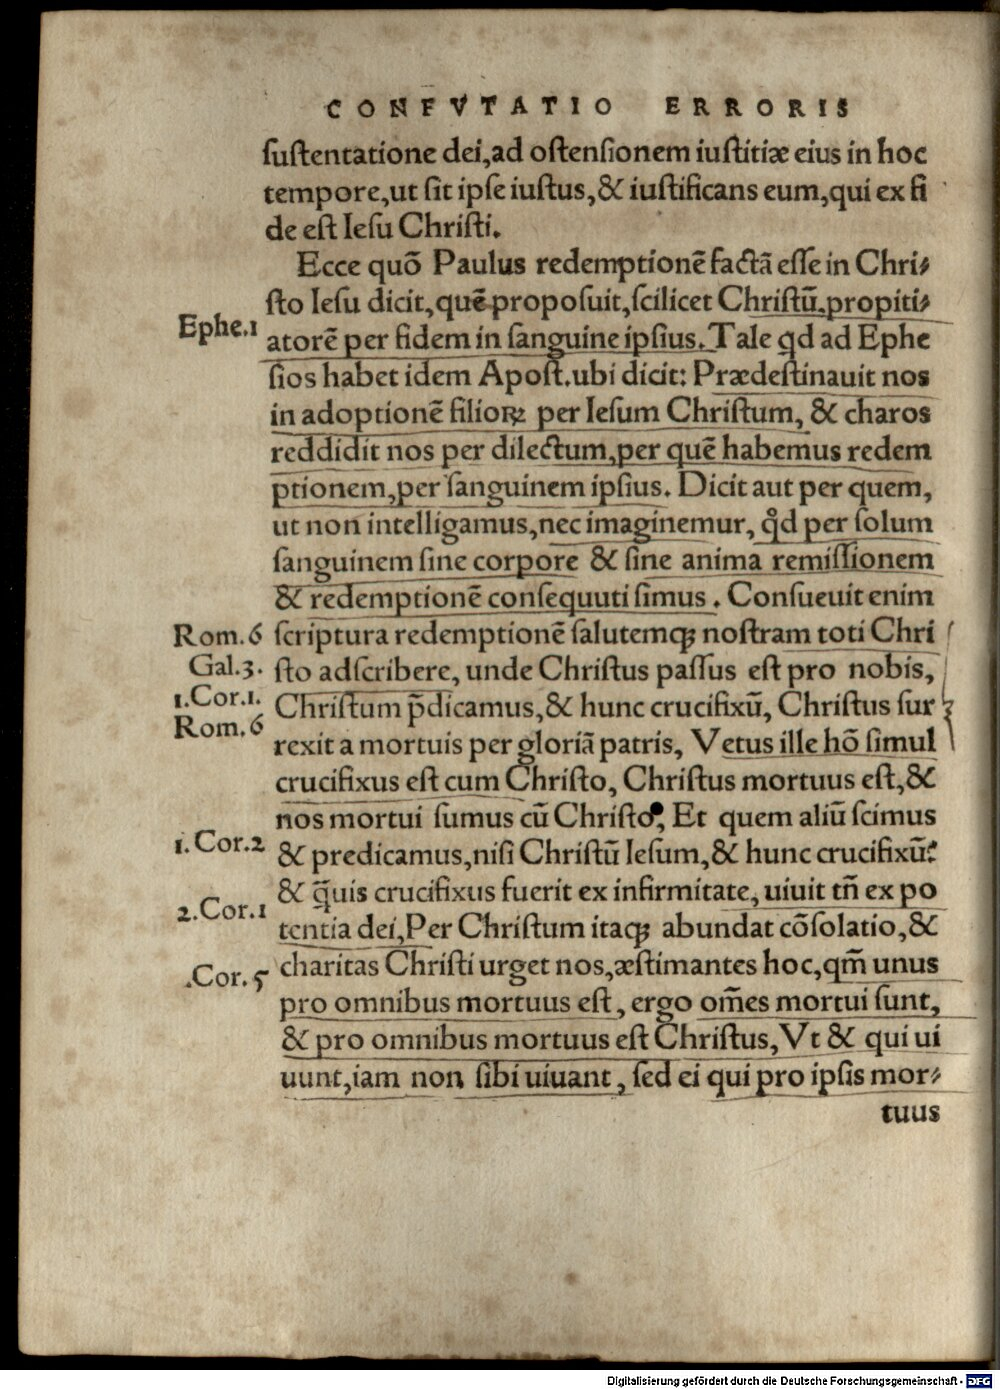 CONFVTATIO ERRORIS
ſuſtentatione dei,ad oſtenſionem iuſtitiæ eius in hoc
tempore,ut ſit ipſe iuſtus,& iuſtificans eum,qui ex fi
de eſt Ieſu Chriſti.
Ecce quō Paulus redemptionē factā eſſe in Chri⸗
ſto Ieſu dicit,quē propoſuit,ſcilicet Chriſtū,propiti⸗
Ephe.1
atorē per fidem in ſanguine ipſius. Tale qd ad Ephe
ſios habet idem Apoſt.ubi dicit: Prædeſtinauit nos
in adoptionē filioꝝ per Ieſum Chriſtum, & charos
reddidit nos per dilectum,per quē habemus redem
ptionem,per ſanguinem ipſius. Dicit aut per quem,
ut non intelligamus,nec imaginemur, qd per ſolum
ſanguinem ſine corpore & ſine anima remiſſionem
& redemptionē conſequuti ſimus . Conſueuit enim
Rom. 6 ſcriptura redemptionē ſalutemqꝫ noſtram toti Chri
Gal.3. ſto adſcribere, unde Chriſtus paſſus eſt pro nobis,
1.Cor.1. Chriſtum p̄dicamus,& hunc crucifixū, Chriſtus ſur
Rom. 6
rexit a mortuis per gloriā patris, Vetus ille hō ſimul
crucifixus eſt cum Chriſto, Chriſtus mortuus eſt,&
nos mortui ſumus cū Chriſto, Et quem aliū ſcimus
1. Cor.2 & predicamus,niſi Chriſtū Ieſum,& hunc crucifixū?
& q̄uis crucifixus fuerit ex infirmitate, uiuit tn̄ ex po
2.Cor.1
tentia dei,Per Chriſtum itaqꝫ abundat cōſolatio,&
.Cor. 5 charitas Chriſti urget nos,æſtimantes hoc,qm̄ unus
pro omnibus mortuus eſt, ergo om̄es mortui ſunt,
& pro omnibus mortuus eſt Chriſtus,Vt & qui ui
uunt,iam non ſibi uiuant, ſed ei qui pro ipſis mor⸗
tuus
Digitalisierung gefördert durch die Deutsche Forschungsgemeinschaft - DFG